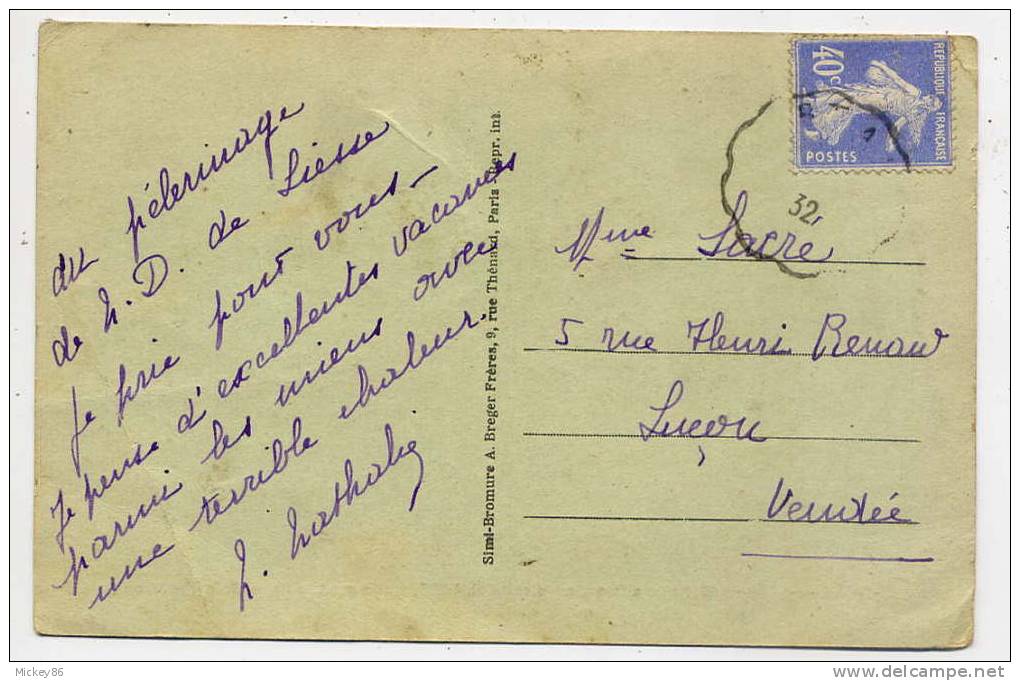 du pélerinage
de N. D. de Liesse
Je prie pour vous –
Je pense d'excellentes vacances
parmi les miens avec
une terrible chaleur.
N. Nathalie
Simi-Bromure A. Breger Frères, 9, rue Thénard, Paris - Repr. int.
REPUBLIQUE FRANÇAISE
40c
POSTES
32
Mme Sacré
5 rue Henri Renaud
Luçon
Vendée
Mickey86
www.delcampe.net